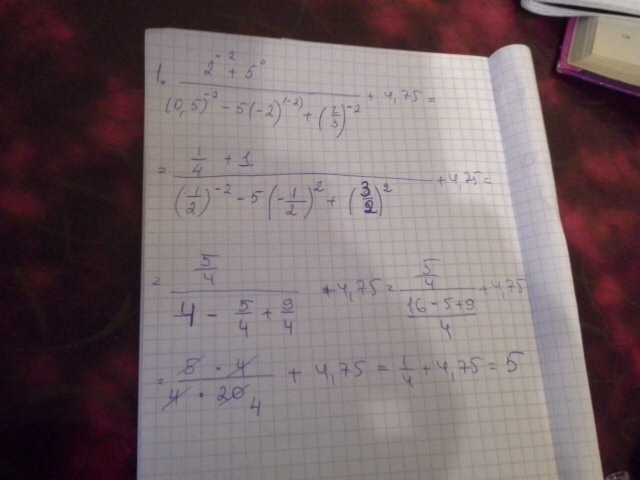 1. (2⁻² + 5⁰)/((0,5)⁻² - 5(-2)⁽⁻²⁾ + (2/3)⁻²) + 4,75 =
= (1/4 + 1)/((1/2)⁻² - 5(-1/2)² + (3/2)²) + 4,75 =
= (5/4)/(4 - 5/4 + 9/4) + 4,75 = (5/4)/((16-5+9)/4) + 4,75
= (5 · 4)/(4 · 20 4) + 4,75 = 1/4 + 4,75 = 5